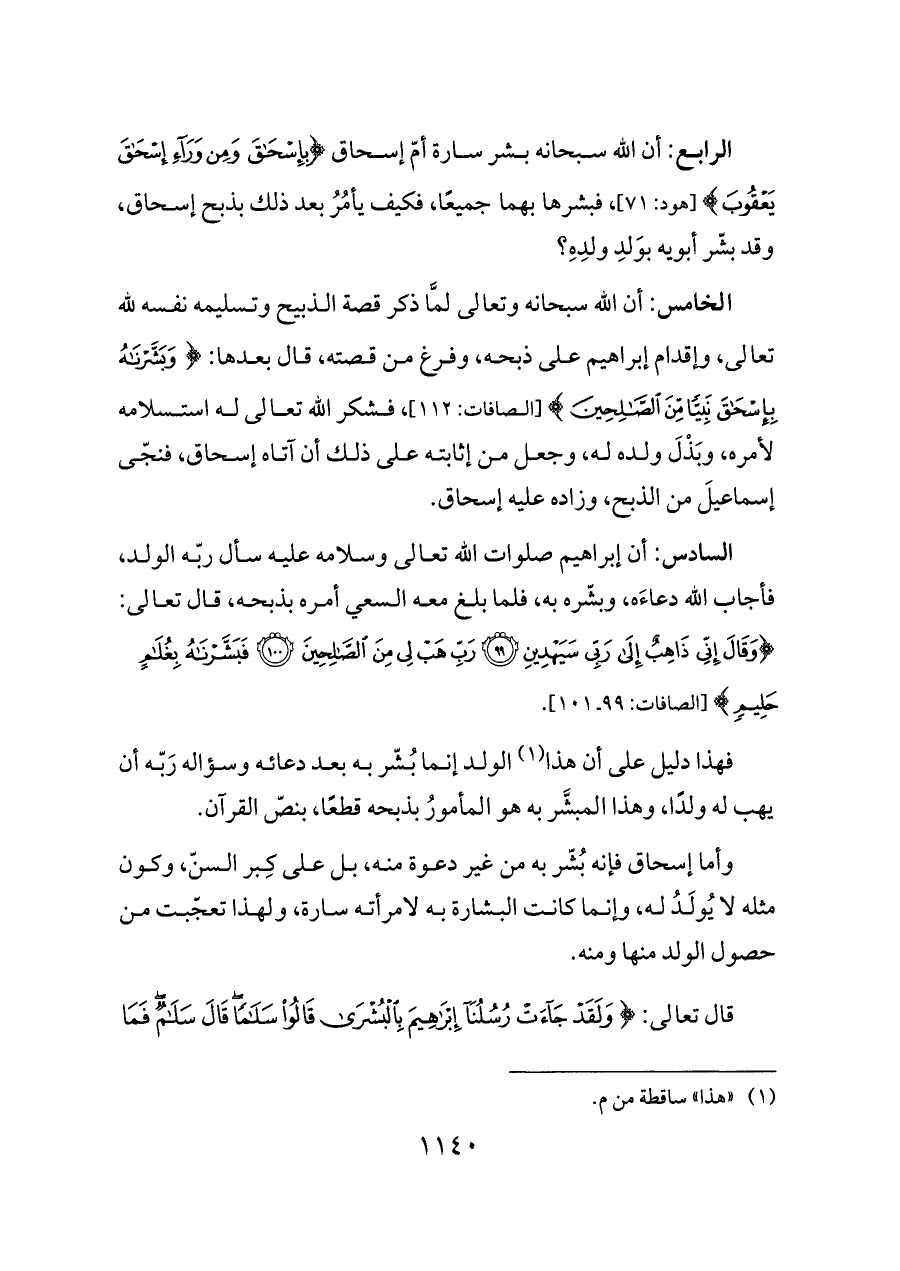 الرابع: أن الله سبحانه بشر سارة أمّ إسحاق ﴿بِإِسْحَٰقَ وَمِن وَرَآءِ إِسْحَٰقَ
يَعْقُوبَ﴾ [هود: ٧١]، فبشرها بهما جميعًا، فكيف يأمُرُ بعد ذلك بذبح إسحاق،
وقد بشّر أبويه بوَلدِ ولدِهِ؟
الخامس: أن الله سبحانه وتعالى لمَّا ذكر قصة الذبيح وتسليمه نفسه لله
تعالى، وإقدام إبراهيم على ذبحه، وفرغ من قصته، قال بعدها: ﴿ وَبَشَّرْنَٰهُ
بِإِسْحَٰقَ نَبِيًّا مِّنَ ٱلصَّٰلِحِينَ ﴾ [الصافات: ١١٢]، فشكر الله تعالى له استسلامه
لأمره، وبَذْلَ ولده له، وجعل من إثابته على ذلك أن آتاه إسحاق، فنجّى
إسماعيلَ من الذبح، وزاده عليه إسحاق.
السادس: أن إبراهيم صلوات الله تعالى وسلامه عليه سأل ربّه الولد،
فأجاب الله دعاءَه، وبشّره به، فلما بلغ معه السعي أمره بذبحه، قال تعالى:
﴿وَقَالَ إِنِّي ذَاهِبٌ إِلَىٰ رَبِّي سَيَهْدِينِ ٩٩ رَبِّ هَبْ لِي مِنَ ٱلصَّٰلِحِينَ ١٠٠ فَبَشَّرْنَٰهُ بِغُلَٰمٍ
حَلِيمٍ ﴾ [الصافات: ٩٩ـ ١٠١].
فهذا دليل على أن هذا(١) الولد إنما بُشّر به بعد دعائه وسؤاله رَبّه أن
يهب له ولدًا، وهذا المبشَّر به هو المأمورُ بذبحه قطعًا، بنصّ القرآن.
وأما إسحاق فإنه بُشّر به من غير دعوة منه، بل على كِبر السنّ، وكون
مثله لا يُولَدُ له، وإنما كانت البشارة به لامرأته سارة، ولهذا تعجّبت من
حصول الولد منها ومنه.
قال تعالى: ﴿ وَلَقَدْ جَآءَتْ رُسُلُنَآ إِبْرَٰهِيمَ بِٱلْبُشْرَىٰ قَالُوا۟ سَلَٰمًا ۖ قَالَ سَلَٰمٌ ۖ فَمَا
(١) «هذا» ساقطة من م.
١١٤٠